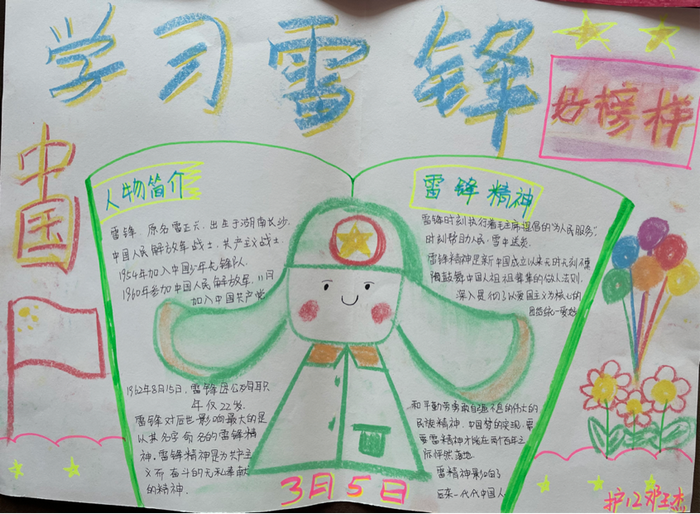 学习雷锋
好榜样
中国
人物简介
雷锋,原名雷正兴,出生于湖南长沙,
中国人民解放军战士,共产主义战士
1954年加入中国少年先锋队,
1960年参加中国人民解放军,11月
加入中国共产党
1962年8月15日,雷锋因公殉职
年仅22岁.
雷锋对后世影响最大的是
以其名字命名的雷锋精
神,雷锋精神是为共产主
义而奋斗的无私奉献
的精神.
雷锋精神
雷锋时刻执行着毛主席提倡的为人民服务,
时刻帮助人民,
雷锋精神是新中国成立以来无时无刻不
鼓舞中国人祖祖辈辈的做人法则.
深入贯彻了以爱国主义为核心的
团结统一爱好
和平勤劳勇敢自强不息的伟大的
民族精神,中国梦的实现,需
要雷锋精神才能在两个百年之
际怦然落地.
雷锋精神影响了
后来一代代中国人
3月5日
护12 邓玉杰